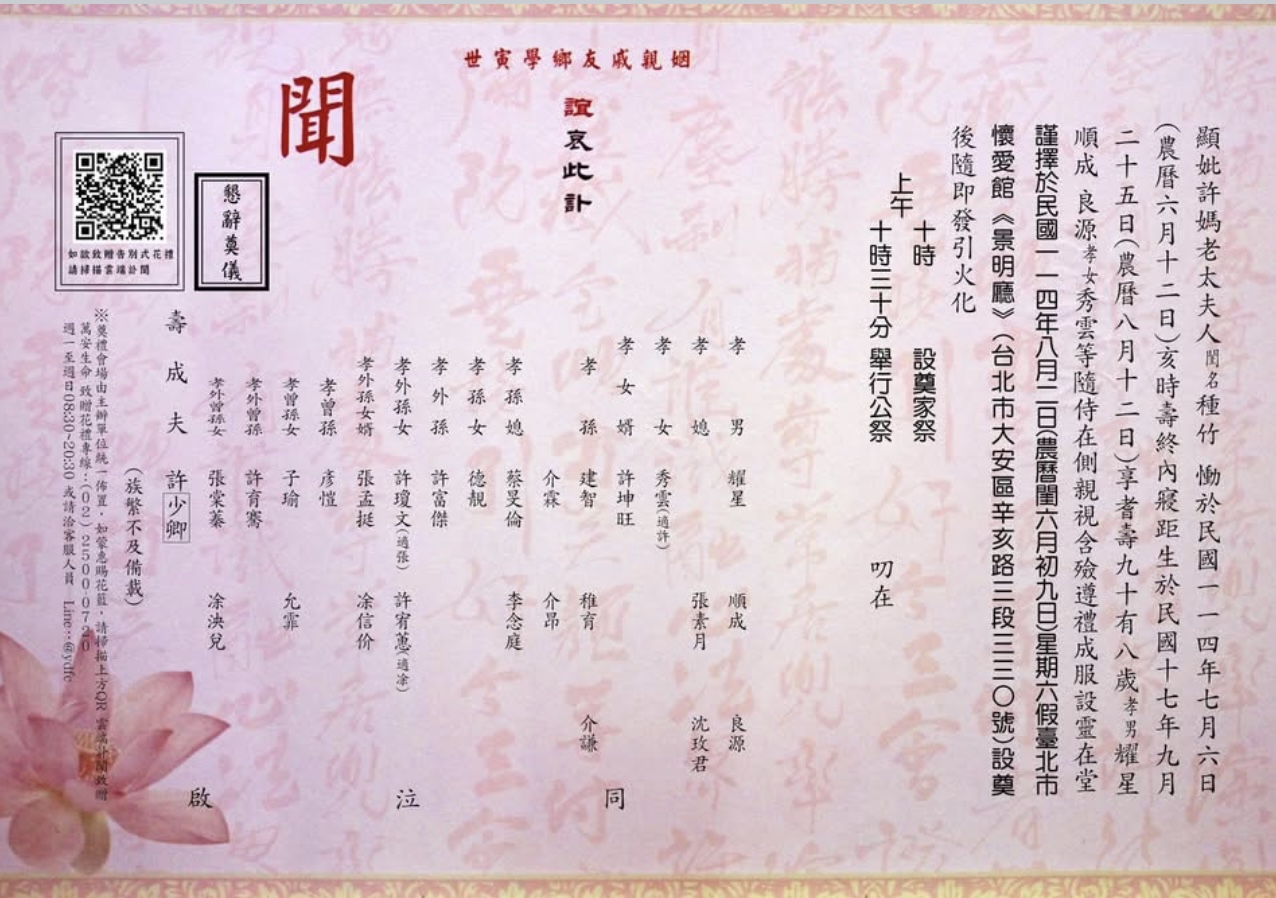 顯妣許媽老太夫人閨名種竹 慟於民國一一四年七月六日
(農曆六月十二日)亥時壽終內寢距生於民國十七年九月
二十五日(農曆八月十二日)享耆壽九十有八歲孝男耀星
順成 良源孝女秀雲等隨侍在側親視含殮遵禮成服設靈在堂
謹擇於民國一一四年八月二日(農曆閏六月初九日)星期六假臺北市
懷愛館《景明廳》(台北市大安區辛亥路三段三三〇號)設奠
上午
十時 設奠家祭
十時三十分 舉行公祭
叨在
後隨即發引火化
姻親戚友鄉學寅世
誼哀此訃
聞
孝男 耀星 順成 良源
孝媳 張素月 沈玫君
孝女 秀雲(適許)
孝女婿 許坤旺
孝孫 建智 稚育 介謙
介霖 介昂
孝孫媳 蔡旻倫 李念庭
孝孫女 德靚
孝外孫 許富傑
孝外孫女 許瓊文(適張) 許宥蕙(適凃)
孝外孫女婿 張孟挺 凃信价
孝曾孫 彥愷
孝曾孫女 子瑜 允霏
孝外曾孫 許育騫
孝外曾孫女 張棠蓁 凃泱兒
壽成夫 許少卿
(族繁不及備載)
同
泣
啟
懇辭奠儀
如欲致贈告別式花禮
請掃描雲端訃聞
※奠禮會場由主辦單位統一佈置，如蒙惠賜花籃，請掃描上方QR 雲端訃聞致贈
萬安生命 致贈花禮專線：(02)2500-0720
週一至週日08:30~20:30 或請洽客服人員 Line：@ydfc